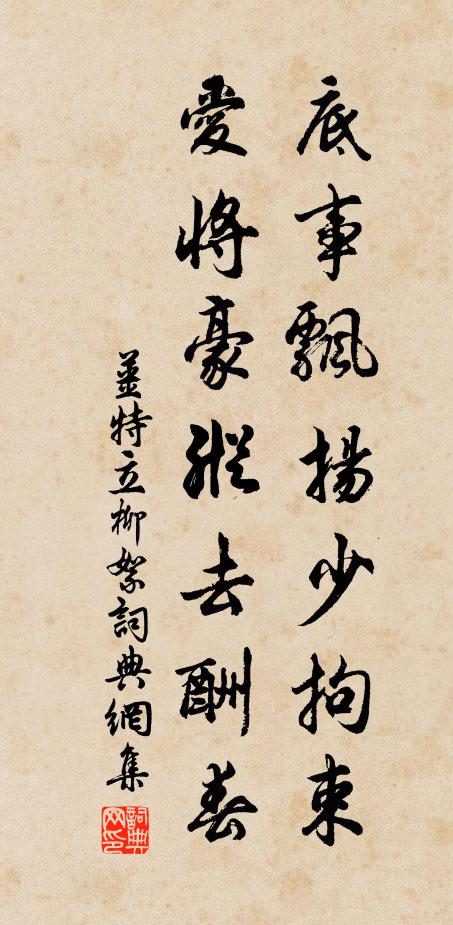 底事飄揚少拘束
愛將豪縱去酬春
姜特立柳絮詞典網集
詞典网印